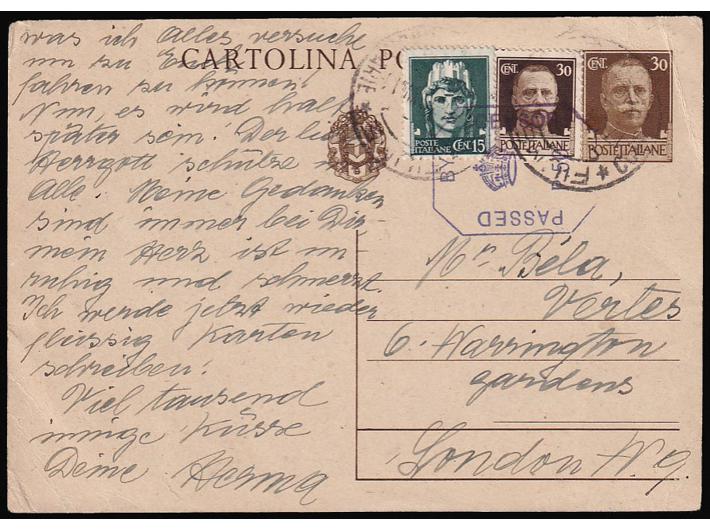 was ich Alles versuche
um zu Euch
fahren zu können.
Nun, es wird halt
später sein. Der liebe
Herrgott schütze
Alle. Meine Gedanken
sind immer bei Dir,
mein Herz ist un
ruhig und schmerzt.
Ich werde jetzt wieder
fleissig Karten
schreiben.
Viel tausend
innige Küsse
Deine Herma
CARTOLINA PO
POSTE ITALIANE CENT 15
CENT. 30
POSTE ITALIANE
CENT. 30
POSTE ITALIANE
FIU
PASSED
BY
Mr. Béla,
Vertes
6. Harrington
gardens
London